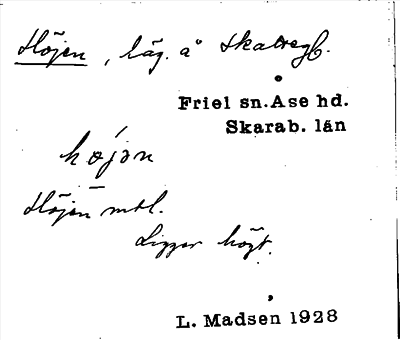 Höjen, läg. å
Friel sn. Åse hd.
Skarab. län
hø´jən
Höjen mtl.
Ligger högt.
L. Madsen 1928